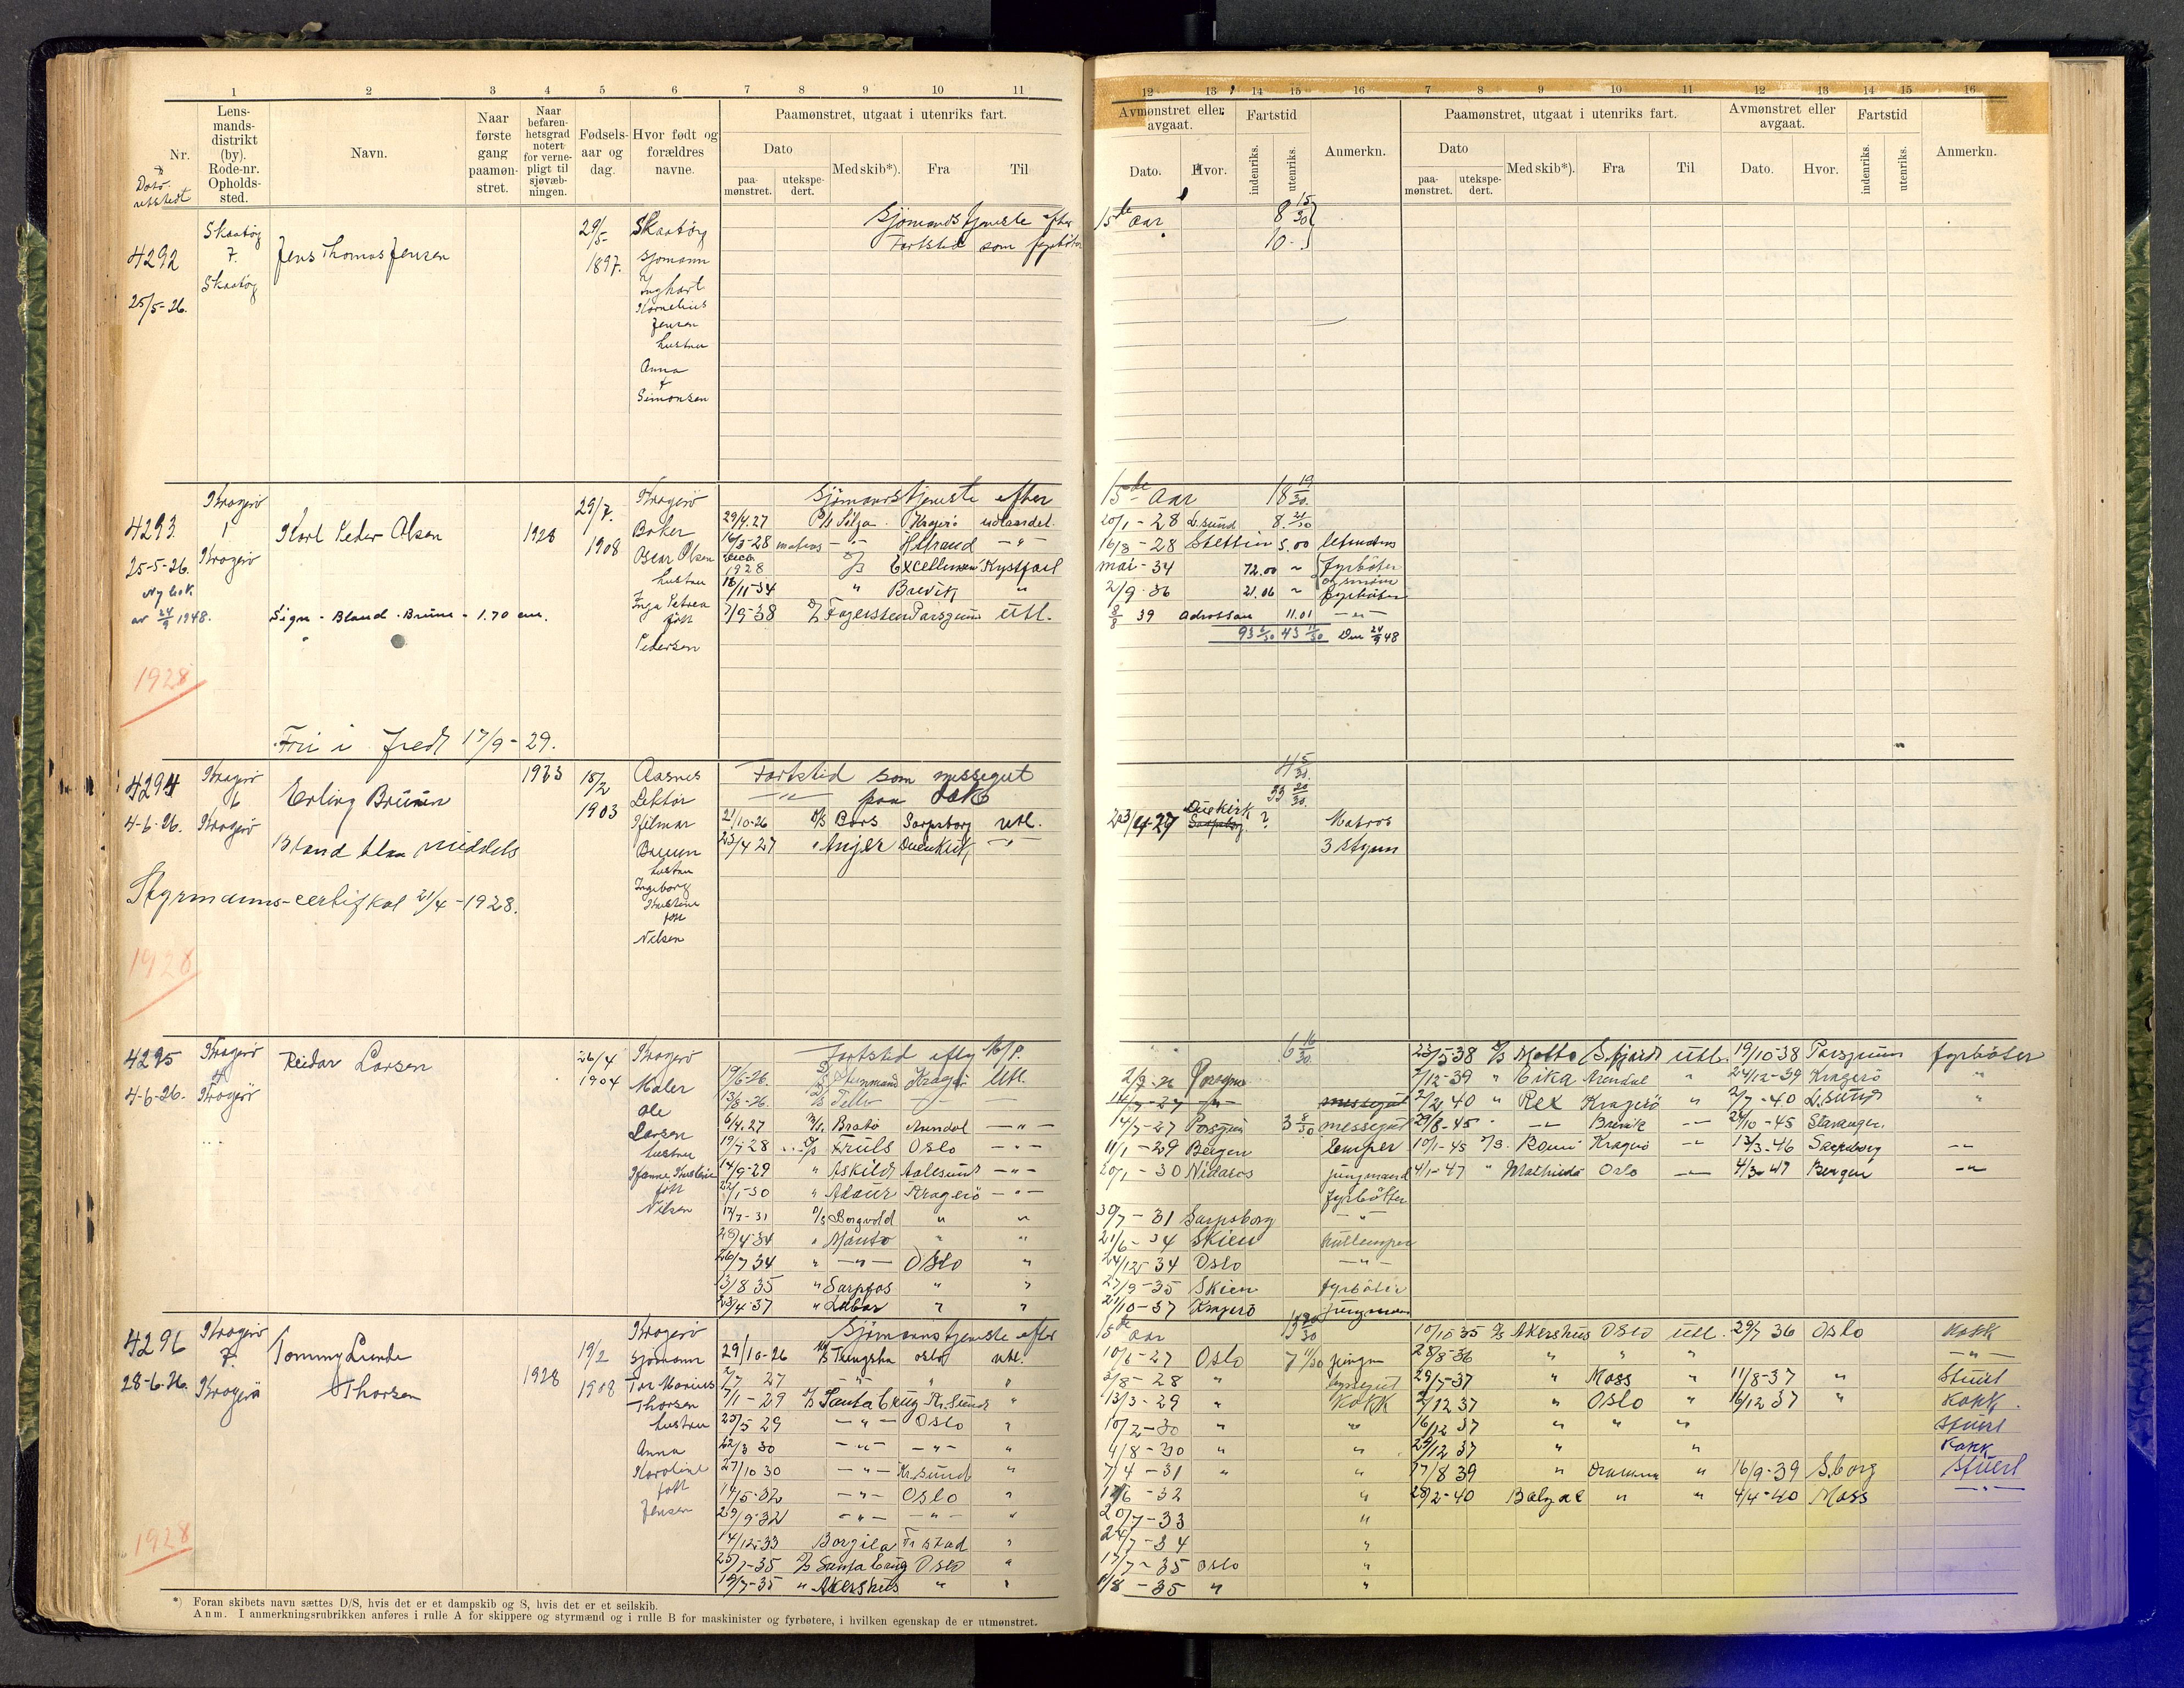 1 2 3 4 5 6 7 8 9 10 11
Nr. Lensmandsdistrikt (by). Rode-nr. Opholdssted. Navn. Naar første gang paamønstret. Naar befarenhetsgrad notert for vernepligt til sjøvæbningen. Fødselsaar og dag. Hvor født og forældres navne. Paamønstret, utgaat i utenriks fart.
Dato paamønstret. utekspedert. Med skib*). Fra Til
12 13 14 15 16 7 8 9 10 11 12 13 14 15 16
Avmønstret eller avgaat. Fartstid Anmerkn. Paamønstret, utgaat i utenriks fart. Avmønstret eller avgaat. Fartstid Anmerkn.
Dato. Hvor. indenriks. utenriks. Dato paamønstret. utekspedert. Med skib*). Fra Til Dato. Hvor. indenriks. utenriks.
4292
25/5-26.
Skaatøy
7.
Skaatøy
Jens Thomas Jensen
29/5-
1897.
Skaatøy
sjømann
Inghart
Kornelius
Jensen
hustru
Anna
f
Simonsen
Sjømandstjeneste efter 15de aar 8 15/30
Fartstid som fyrbøter 10-
4293
25-5-26.
Ny bok
av 24/9 1948.
1928
Kragerø
1
Kragerø
Karl Peder Olsen
Sign - Bland - Brune - 1.70 cm.
Fri i fred 17/9-29.
1928
29/7.
1908
Kragerø
Baker
Oscar Olsen
hustru
Inga Petrea
født
Pedersen
Sjømannstjeneste efter 15de Aar 18 19/30.
29/4.27 Silja Kragerø udlandet. 20/1-28 L.sund 8. 21/30
16/3-28 matros -"- -"- 16/8-28 Stettin 5.00
1928 Excellensen Kystfart mai-34 72.00 ~ fyrbøter
18/11-34 " Brevik " 2/9-36 21.06 ~ fyrbøter
7/9-38 Fagersten Porsgrunn Utl. 8/8 39 Adrossan 11.01 -"-
24/9 48
4294
4-6-26.
1928
Kragerø
6
Kragerø
Erling Bruun
Bland blaa middels
Styrmanns-certifikat 21/4-1928.
1923
15/2
1903
Aasnes
Lektor
Hilmar
Bruun
hustru
Ingeborg
Kristine
født
Nielsen
Fartstid som messegut 4 5/30.
-"- paa dæk 33 20/30.
21/10-26 D/S Bors Sarpsborg utl. 23/4-27 Duekirk ? Matros
23/4 27 " Anjer Duenkirk -"- 3 styrm
4295
4-6-26.
Kragerø
4
Kragerø
Reidar Larsen
26/4
1904
Kragerø
Maler
Ole
Larsen
hustru
Hanne Kristine
født
Nilsen
Fartstid 6 16/30
19/6-26. Kragerø Utl. 2/7-26 Porsgrun
13/8-26. D/S Tello
6/4.27 Bratø Arendal -"- 14/7-27 Porsgrun 3 8/30 messegut
19/7-28 D/S Truls Oslo -"- 11/1-29 Bergen lemper
14/9-29 " Askild Aalesund -"- 20/1-30 Nidaros jungmand
22/1-30 " Adour Kragerø -"- fyrbøtter
17/7-31 D/S Borgvold " " 30/7-31 Sarpsborg -"-
28/4-34 " Manto " " 21/6-34 Skien kullemper
26/7 34 " -"- Oslo " 24/12-34 Oslo -"-
13/8 35 " Sarpfos " " 27/9-35 Skien fyrbøter
23/4-37 " Labor " " 21/10-37 Kragerø jungmann
23/5-38 D/S Motto S.fjord Utl. 19/10-38 Porsgrunn fyrbøter
2/12-39 " Eika Arendal " 24/12-39 Kragerø "
2/2 40 " Rex Kragerø " 2/7-40 L.sund "
29/8-45 " -"- Brevik -"- 24/10-45 Stavanger.
10/1-45 D/S. Kragerø -"- 13/3-46 Sarpsborg -"-
4/1-47 " Mathilda Oslo -"- 4/3-47 Bergen -"-
4296
28-6-26.
1928
Kragerø
7.
Kragerø
Tommy Lunde
Thorsen
1928
19/2
1908
Kragerø
sjømann
Tor Marius
Thorsen
hustru
Anna
Karoline
født
Jensen
Sjømannstjeneste efter 15de aar
29/10-26 M/S Thingsha Oslo utl. 10/6-27 Oslo 7 11/30 jungm
2/7 27 -"- " " 3/8-28 " byssegut
7/1-29 D/S Santa Cruz Kr.sund " 13/3-29 " Kokk
23/5 29 -"- Oslo " 10/2-30 " "
22/3 30 -"- -"- " 4/8-30 " "
27/10 30 -"- Kr.sund " 7/4-31 " "
14/5-32 -"- Oslo " 12/6-32 "
29/9-32 -"- -"- " 20/7-33 "
14/12-33 Borgila Fr stad " 24/7-34 "
25/1-35 D/S Santa Cruz Oslo " 17/7-35 Oslo "
19/7-35 " Akershus " " 1/8-35 " "
10/10-35 D/S Akershus Oslo utl. 29/7 36 Oslo Kokk
28/8-36 " " " -"-
29/5-37 " Moss " 11/8-37 " Stuert
2/12 37 " Oslo " 16/12 37 " Kokk.
16/12 37 " " " Stuert
29/12 37 " " Kokk
17/8 39 " Drammen " 16/9-39 S.borg Stuert
28/2-40 Balzac " " 4/4-40 Moss -"-
*) Foran skibets navn sættes D/S, hvis det er et dampskib og S, hvis det er et seilskib.
Anm. I anmerkningsrubrikken anføres i rulle A for skippere og styrmænd og i rulle B for maskinister og fyrbøtere, i hvilken egenskap de er utmønstret.